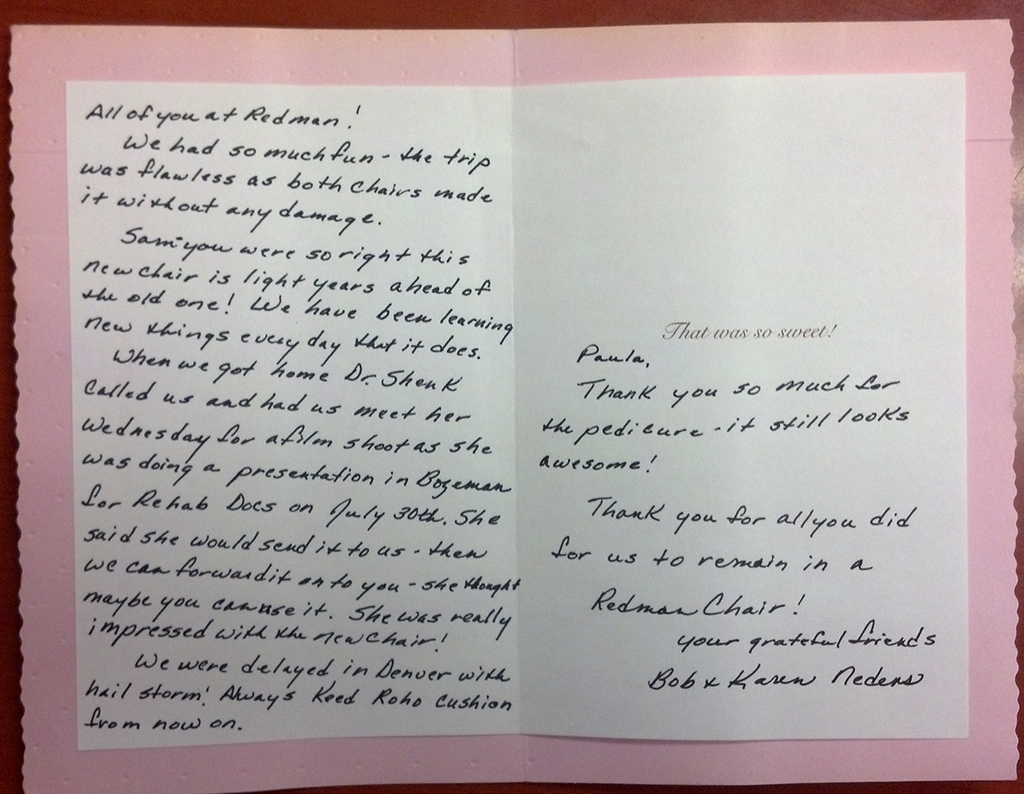 All of you at Redman!
We had so much fun - the trip
was flawless as both chairs made
it without any damage.
Sam-you were so right this
new chair is light years ahead of
the old one! We have been learning
new things every day that it does.
When we got home Dr. Shenk
called us and had us meet her
Wednesday for a film shoot as she
was doing a presentation in Bozeman
for Rehab Docs on July 30th. She
said she would send it to us - then
we can forward it on to you - she thought
maybe you can use it. She was really
impressed with the new chair!
We were delayed in Denver with
hail storm! Always Keed Roho cushion
from now on.
That was so sweet!
Paula,
Thank you so much for
the pedicure - it still looks
awesome!
Thank you for all you did
for us to remain in a
Redman Chair!
your grateful friends
Bob & Karen Nedens